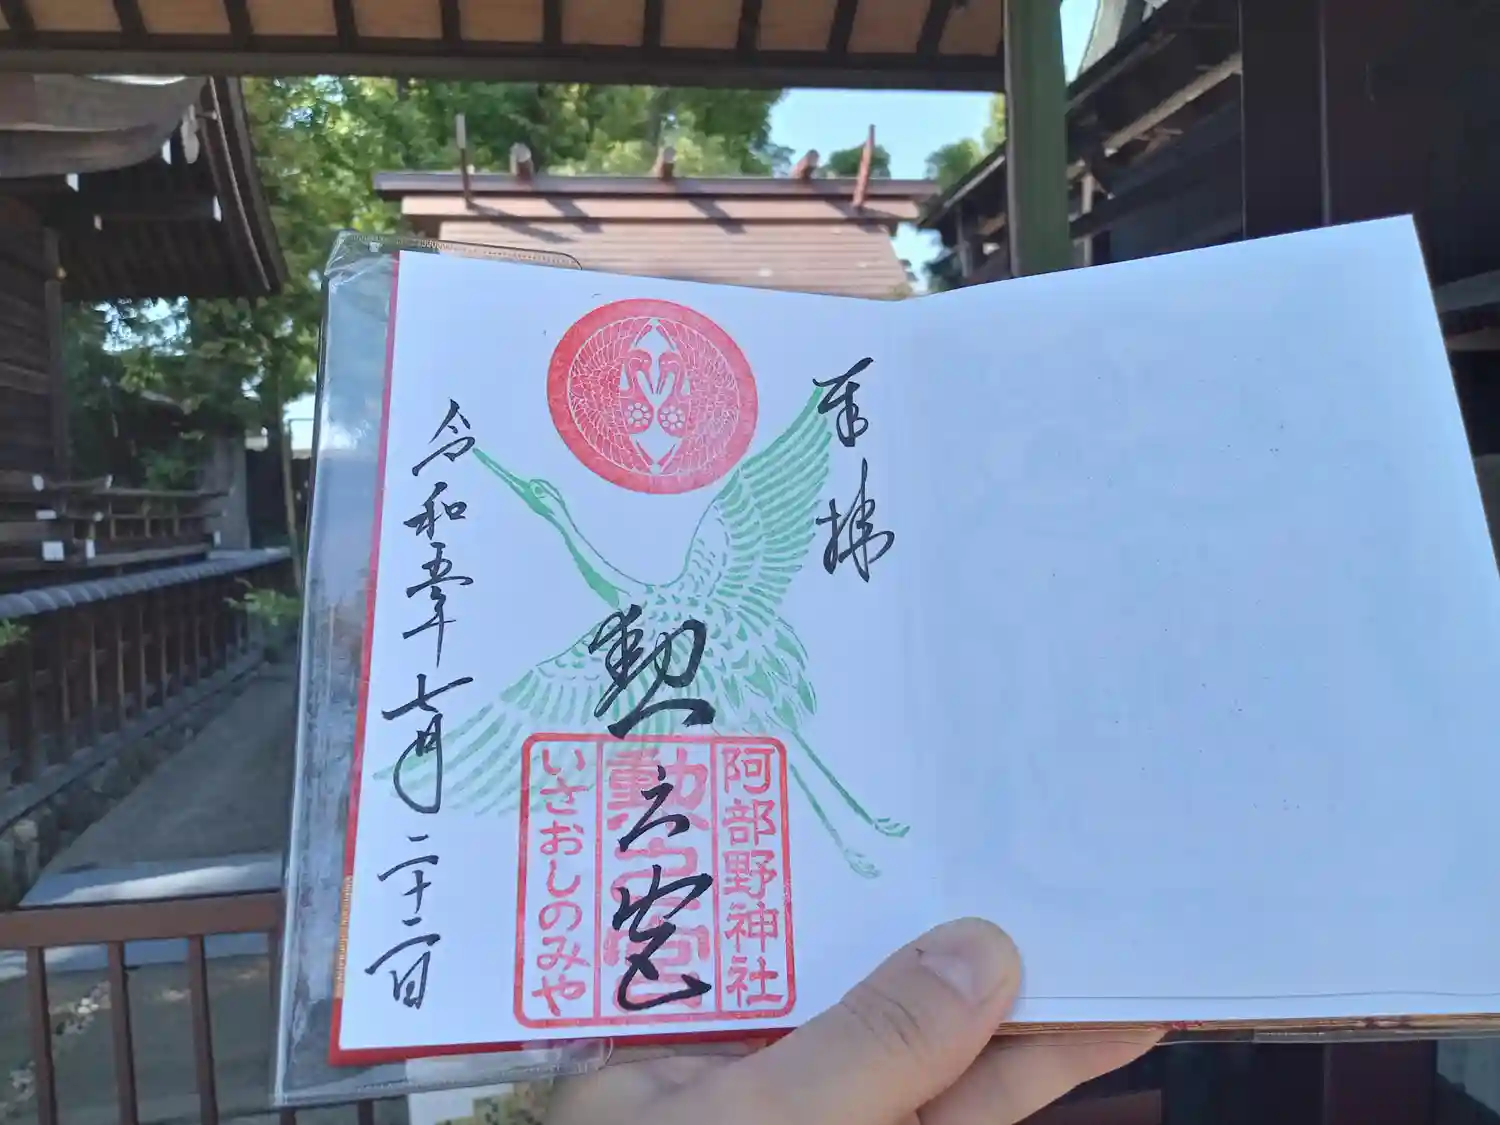 奉拝
勲之宮
阿部野神社
勲之宮
いさおしのみや
令和五年七月二十二日